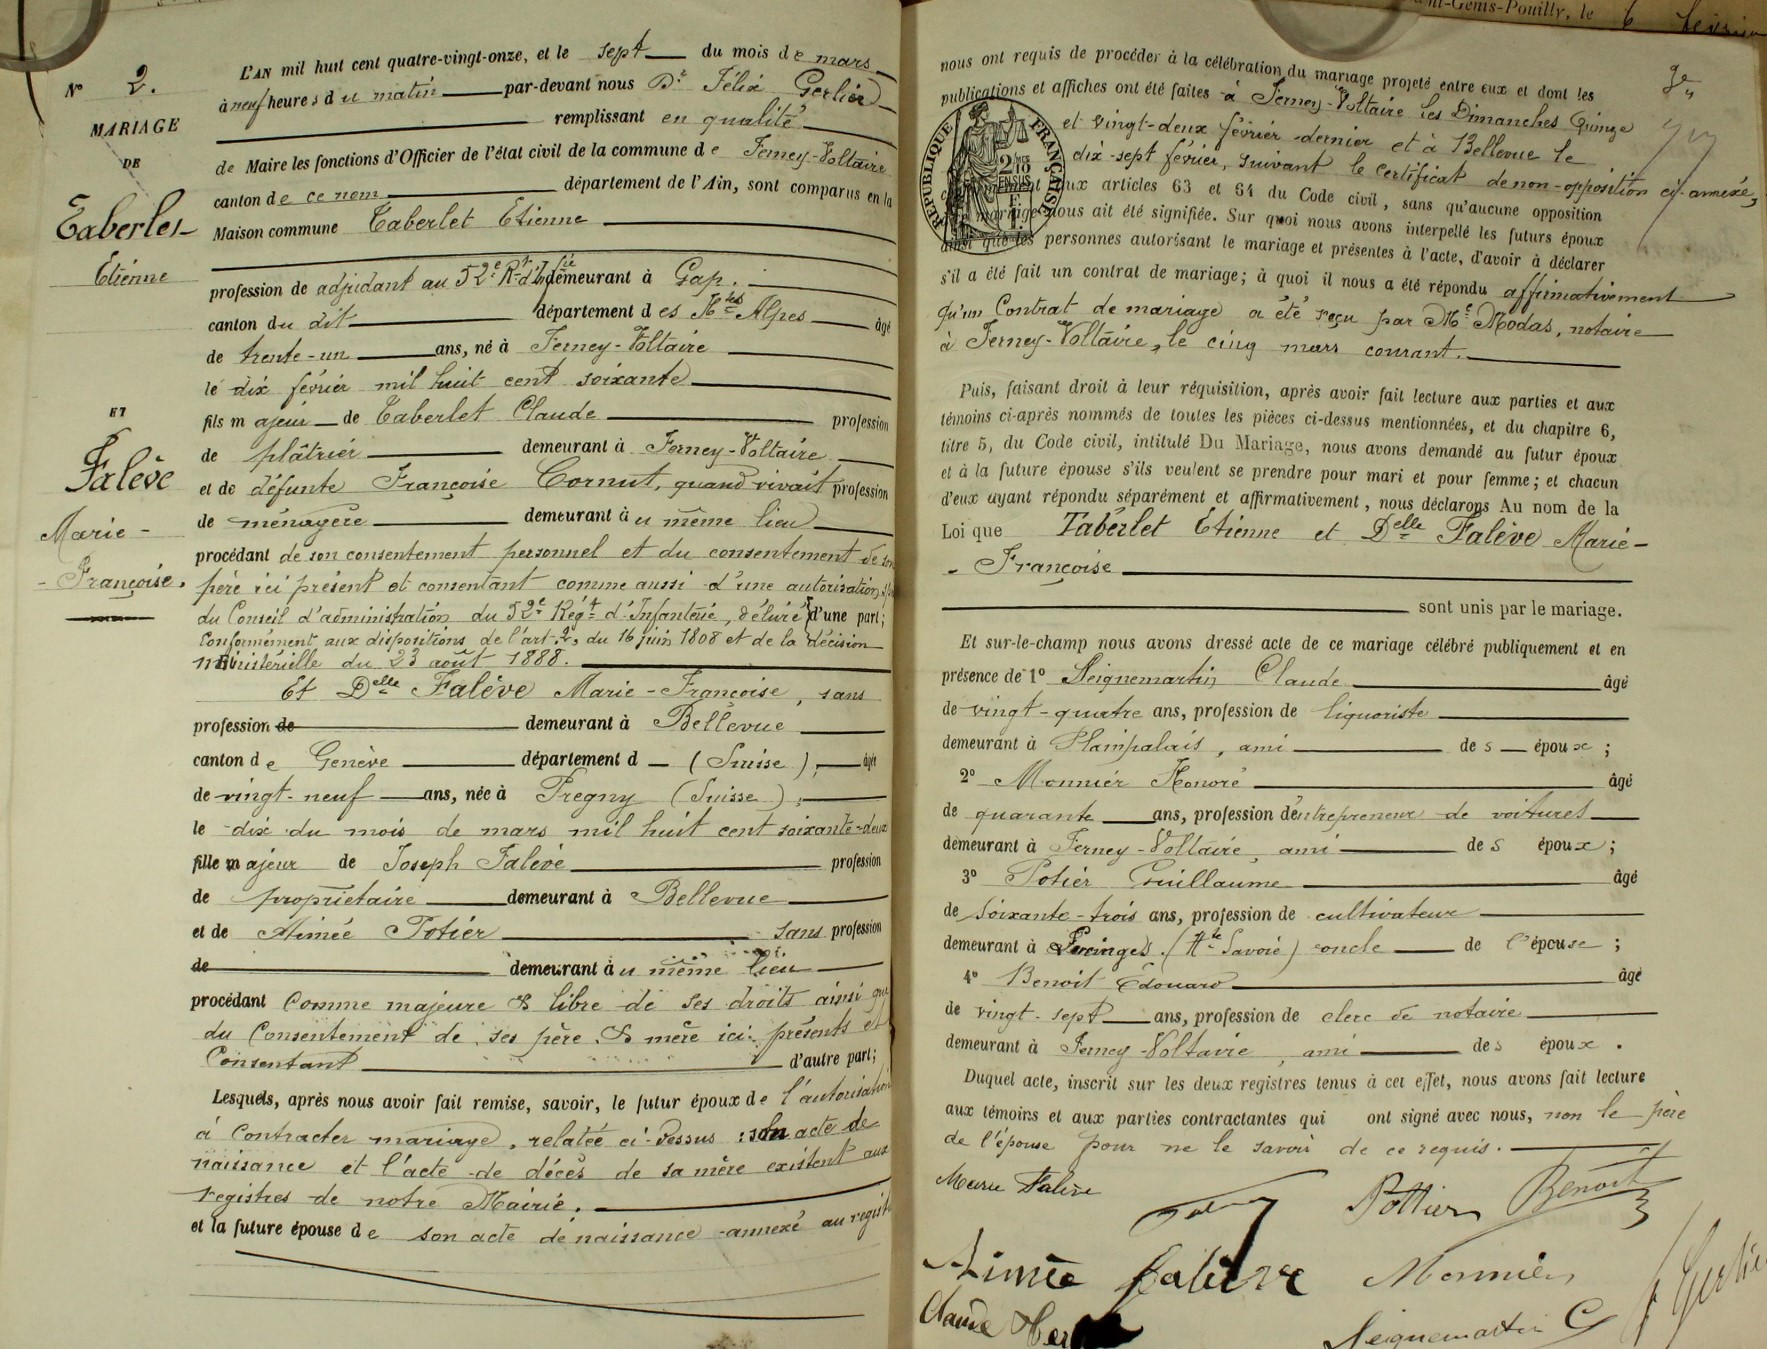 N° 2.
MARIAGE
DE
Taberlet
Etienne
ET
Falève
Marie-
-Françoise.
L'AN mil huit cent quatre-vingt-onze, et le sept du mois de mars
à neuf heures du matin par-devant nous Dr Félix Gerlier
remplissant en qualité
de Maire les fonctions d'Officier de l'état civil de la commune de Ferney-Voltaire
canton de ce nom département de l'Ain, sont comparus en la
Maison commune Taberlet Etienne
profession de adjudant au 52e Rt d'Infie demeurant à Gap.
canton du dit département des Htes Alpes âgé
de trente-un ans, né à Ferney-Voltaire
le dix février mil huit cent soixante
fils majeur de Taberlet Claude profession
de plâtrier demeurant à Ferney-Voltaire
et de défunte Françoise Cornut, quand vivait profession
de ménagère demeurant au même lieu
procédant de son consentement personnel et du consentement de son
père ici présent et consentant comme aussi d'une autorisation
du Conseil d'administration du 52e Régt d'Infanterie, délivré d'une part;
Conformément aux dispositions de l'art. 2, du 16 juin 1808 et de la décision
ministérielle du 23 août 1888.
Et Delle Falève Marie-Françoise, sans
profession de demeurant à Bellevue
canton de Genève département d (Suisse), âgée
de vingt-neuf ans, née à Pregny (Suisse),
le dix du mois de mars mil huit cent soixante-deux
fille majeur de Joseph Falève profession
de propriétaire demeurant à Bellevue
et de Aimée Potier sans profession
de demeurant au même lieu
procédant Comme majeure & libre de ses droits ainsi que
du Consentement de ses père & mère ici présents et
Consentant d'autre part;
Lesquels, après nous avoir fait remise, savoir, le futur époux de l'autorisation
à Contracter mariage, relatée ci-dessus : son acte de
naissance et l'acte de décès de sa mère existent aux
registres de notre Mairie.
et la future épouse de son acte de naissance annexé au registre
Saint-Genis-Pouilly, le 6 février
nous ont requis de procéder à la célébration du mariage projeté entre eux et dont les
publications et affiches ont été faites à Ferney-Voltaire les Dimanches Quinze
et vingt-deux février dernier et à Bellevue le
dix-sept février, suivant le certificat de non-opposition ci-annexé,
aux articles 63 et 64 du Code civil, sans qu'aucune opposition
mariage nous ait été signifiée. Sur quoi nous avons interpellé les futurs époux
ainsi que les personnes autorisant le mariage et présentes à l'acte, d'avoir à déclarer
s'il a été fait un contrat de mariage; à quoi il nous a été répondu affirmativement
qu'un Contrat de mariage a été reçu par Me Modas, notaire
à Ferney-Voltaire, le cinq mars courant.
RÉPUBLIQUE FRANÇAISE
Puis, faisant droit à leur réquisition, après avoir fait lecture aux parties et aux
témoins ci-après nommés de toutes les pièces ci-dessus mentionnées, et du chapitre 6,
titre 5, du Code civil, intitulé Du Mariage, nous avons demandé au futur époux
et à la future épouse s'ils veulent se prendre pour mari et pour femme; et chacun
d'eux ayant répondu séparément et affirmativement, nous déclarons Au nom de la
Loi que Taberlet Etienne et Delle Falève Marie-
-Françoise
sont unis par le mariage.
Et sur-le-champ nous avons dressé acte de ce mariage célébré publiquement et en
présence de 1° Seignemartin Claude âgé
de vingt-quatre ans, profession de liquoriste
demeurant à Plainpalais, ami des époux;
2° Monnier Honoré âgé
de quarante ans, profession d'entrepreneur de voitures
demeurant à Ferney-Voltaire, ami des époux;
3° Potier Guillaume âgé
de soixante-trois ans, profession de cultivateur
demeurant à Lucinges. (Hte Savoie) oncle de l'épouse;
4° Benoit Edouard âgé
de vingt-sept ans, profession de clerc de notaire
demeurant à Ferney-Voltaire, ami des époux.
Duquel acte, inscrit sur les deux registres tenus à cet effet, nous avons fait lecture
aux témoins et aux parties contractantes qui ont signé avec nous, non le père
de l'épouse pour ne le savoir de ce requis.
Marie Falève
Pottier Benoit
Aimée Falève Monnier
Claude
Seignemartin C
Gerlier